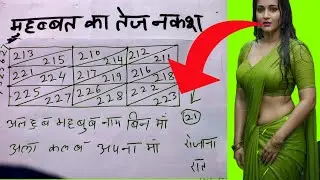 मुहब्बत का तेज नकश
213 210 212 211
215
221 224 217 219 216 218
225 227 226 228 222 223
अलहुब महबुब नाम बिन मां
अला कलब अपना मां
21
रोजाना
रात